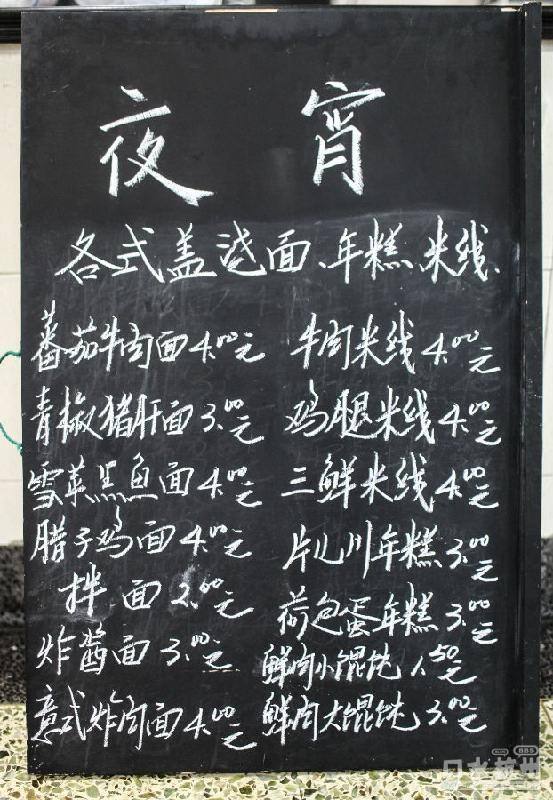 夜宵
各式盖浇面、年糕、米线、
蕃茄牛肉面4.00元
青椒猪肝面3.00元
雪菜黑鱼面4.00元
腊子鸡面4.00元
拌面2.00元
炸酱面3.00元
意式炸肉面4.00元
牛肉米线4.00元
鸡腿米线4.00元
三鲜米线4.00元
片儿川年糕3.00元
荷包蛋年糕3.00元
鲜肉小馄饨1.50元
鲜肉大馄饨3.00元
口水杭州
BBS